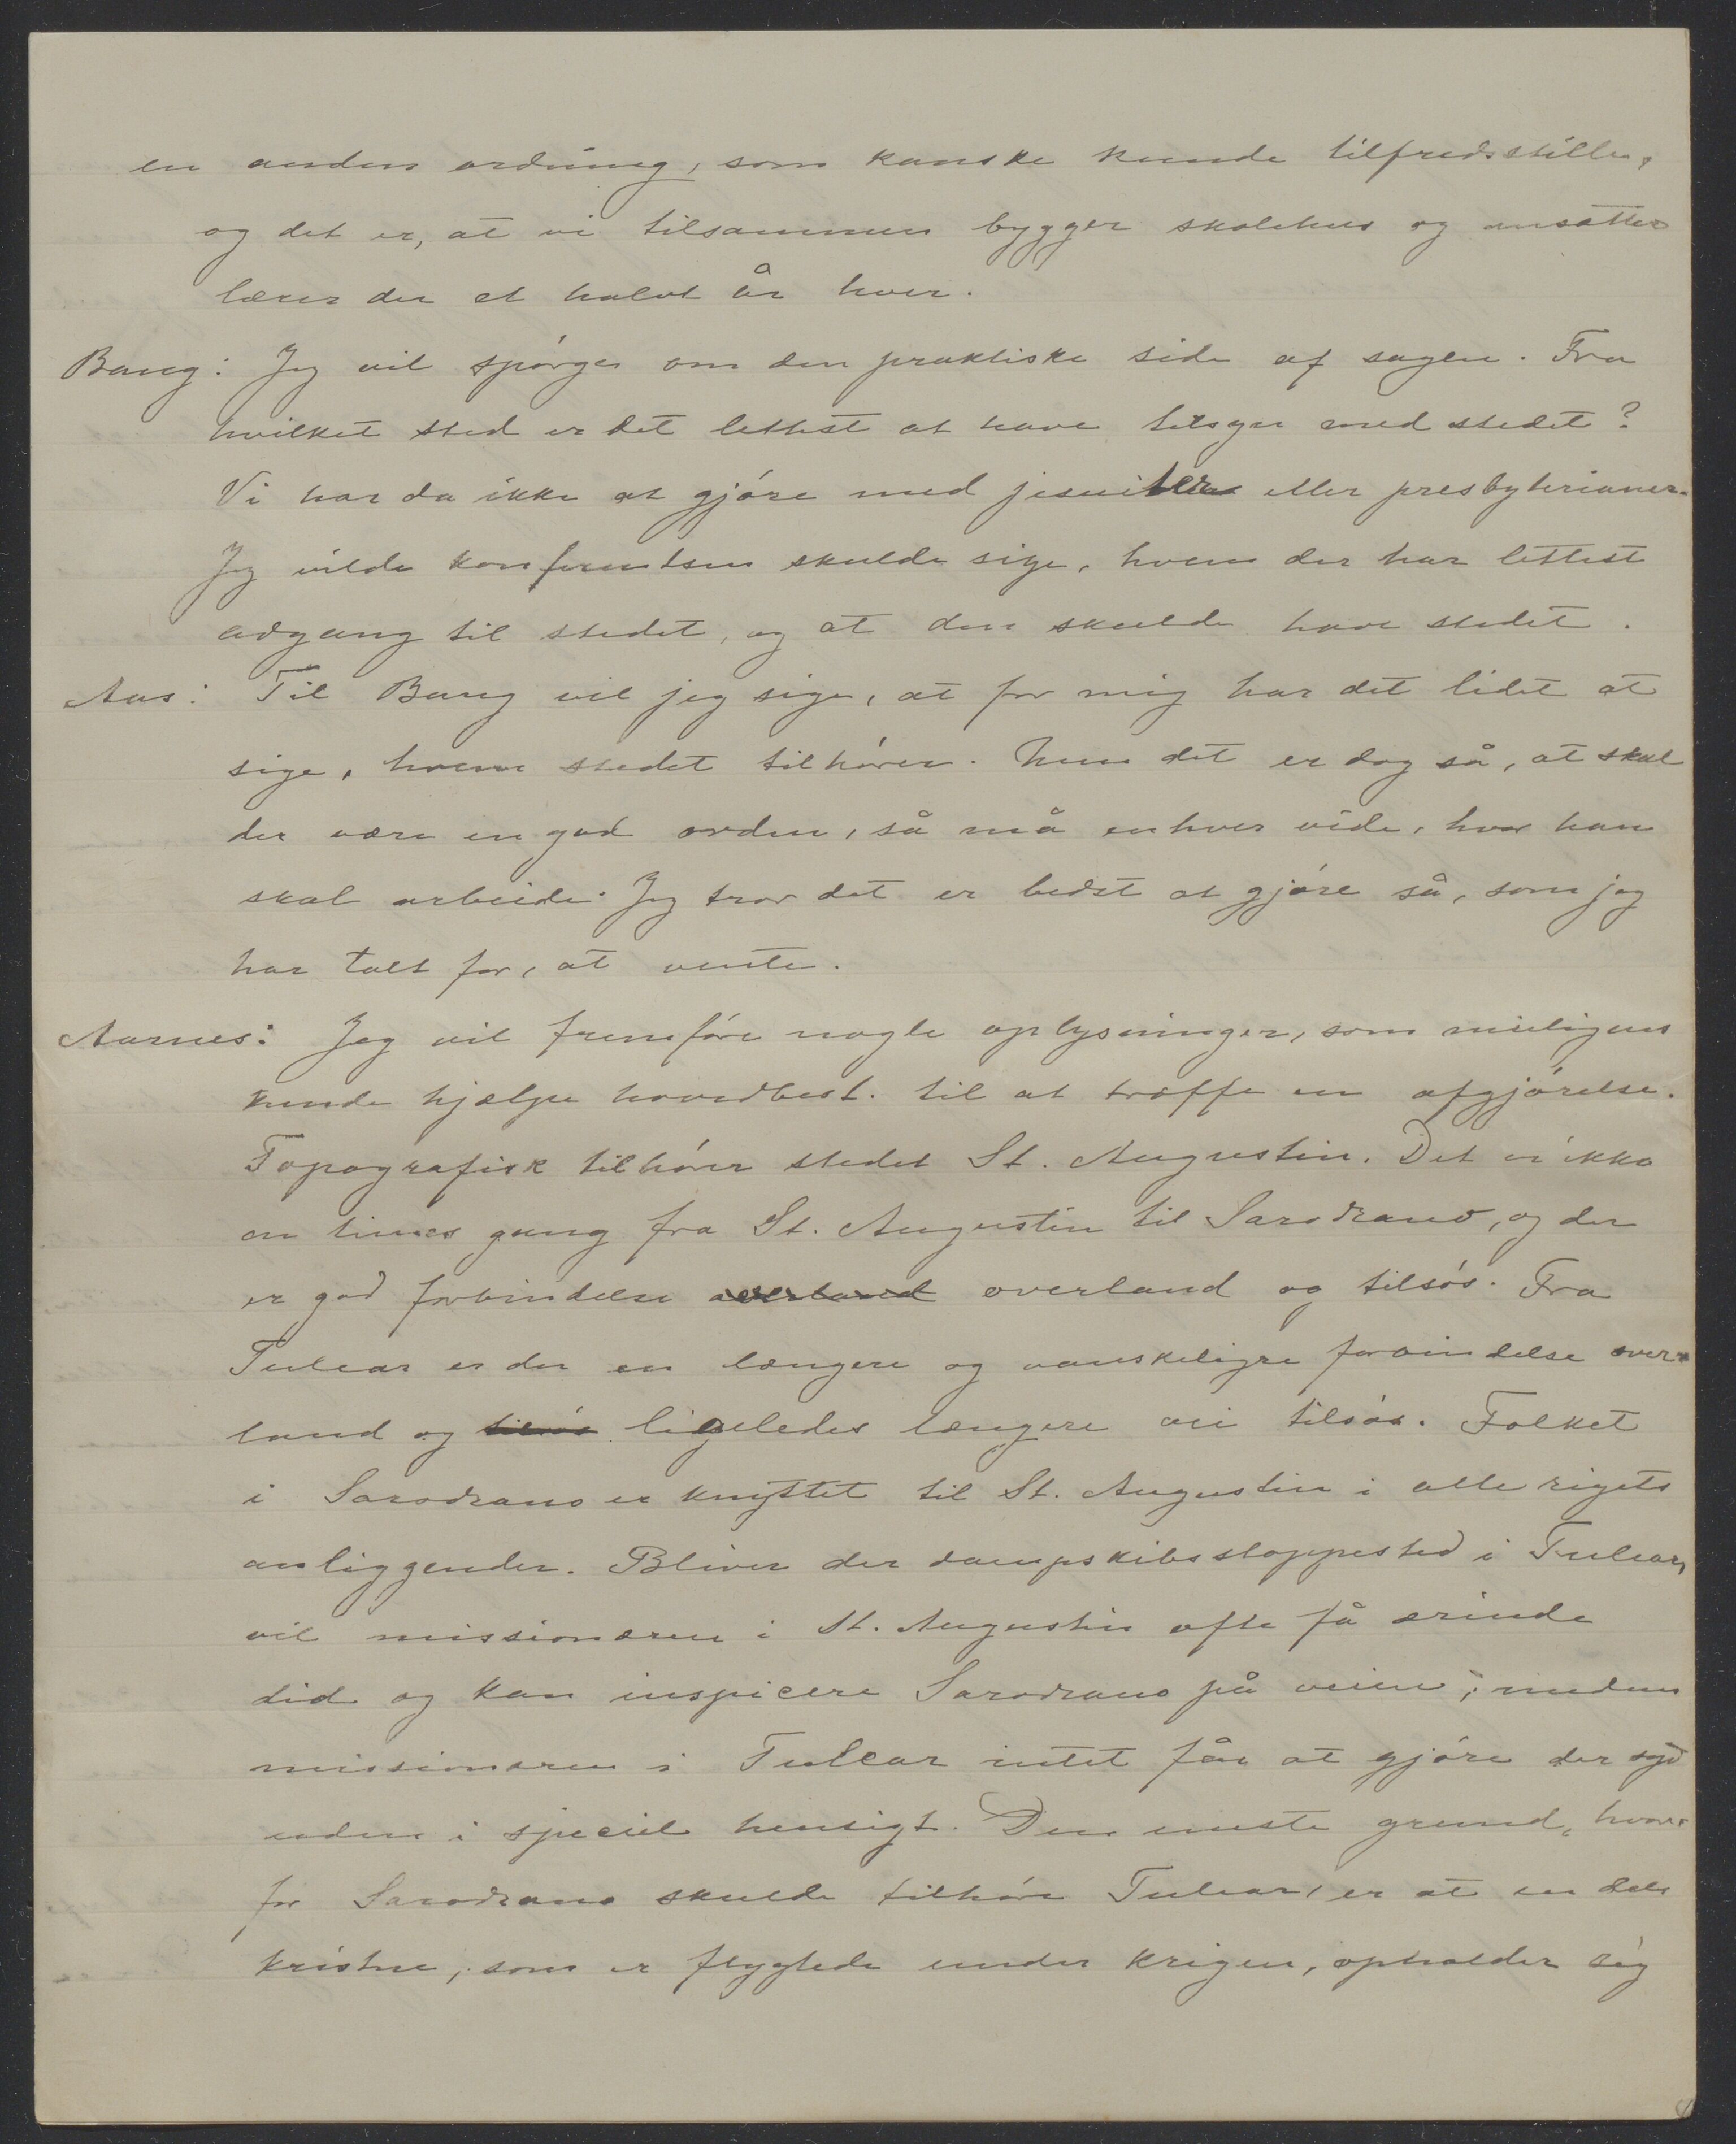 en anden ordning, som kanske kunde tilfredsstille,
og det er, at vi tilsammen bygger skolehus og ansætter
lærer der et halvt år hver.
Bang: Jeg vil spørge om den praktiske side af sagen. Fra
hvilket sted er det lettest at have tilsyn med stedet?
Vi har da ikke at gjøre med jesuiter eller presbyterianer.
Jeg vilde konferentsen skulde sige, hvem der har lettest
adgang til stedet, og at den skulde have stedet.
Aas: Til Bang vil jeg sige, at for mig har det lidet at
sige, hvem stedet tilhører. Men det er dog så, at skal
der være en god orden, så må enhver vide, hvor han
skal arbeide. Jeg tror det er bedst at gjøre så, som jeg
har talt for, at vente.
Aarnes: Jeg vil fremføre nogle oplysninger, som muligens
kunde hjælpe hovedbest. til at træffe en afgjørelse.
Topografisk tilhører stedet St. Augustin. Det er ikke
en times gang fra St. Augustin til Sarodrano, og der
er god forbindelse overland overland og tilsøs. Fra
Tulear er der en længere og vanskeligre forbindelse over-
land og tilsøs ligeledes længere vei tilsøs. Folket
i Sarodrano er knyttet til St. Augustin i alle rigets
anliggender. Bliver der dampskibsstoppested i Tulear,
vil missionæren i St. Augustin ofte få ærinde
did og kan inspicere Sarodrano på veien; medens
missionæren i Tulear intet får at gjøre der syd
uden i speciel hensigt. Den eneste grund, hvor-
for Sarodrano skulde tilhøre Tulear, er at en dels
kristne, som er flygtede under krigen, opholder sig